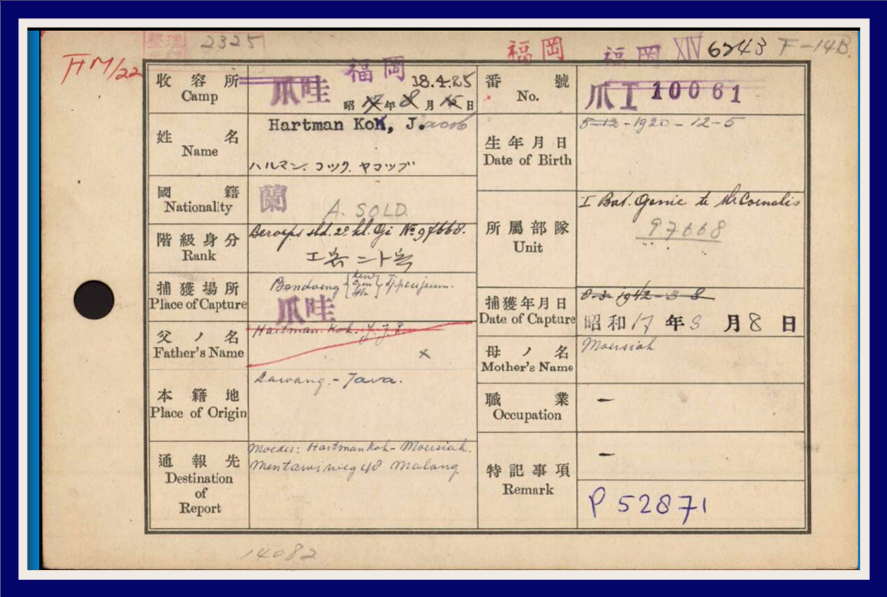 2325
福岡
福岡 XIV 6243 F-14B.
收容所
Camp
爪哇 福岡 18.4.25
昭 17 年 8 月 15 日
番號
No.
爪工 10061
姓名
Name
Hartman Kok, J. acob
ハルマン. コック. ヤコップ
生年月日
Date of Birth
-1920-12-5
國籍
Nationality
蘭
A. SOLD.
階級身分
Rank
Beroeps sld. 2e kl. Gi No 97668.
所屬部隊
Unit
I Bat. Genie te Mr Cornelis
97668
捕獲場所
Place of Capture
Bandoeng Tjpeujeum.
爪哇
捕獲年月日
Date of Capture
1942-3-8
昭和 17 年 3 月 8 日
父ノ名
Father's Name
Hartman Kok.
x
母ノ名
Mother's Name
Moersiah
本籍地
Place of Origin
Lawang - Java.
職業
Occupation
—
通報先
Destination
of
Report
Moeder: Hartman Kok- Moersiah.
Mentawiweg 48 Malang
特記事項
Remark
—
P 52871
14082